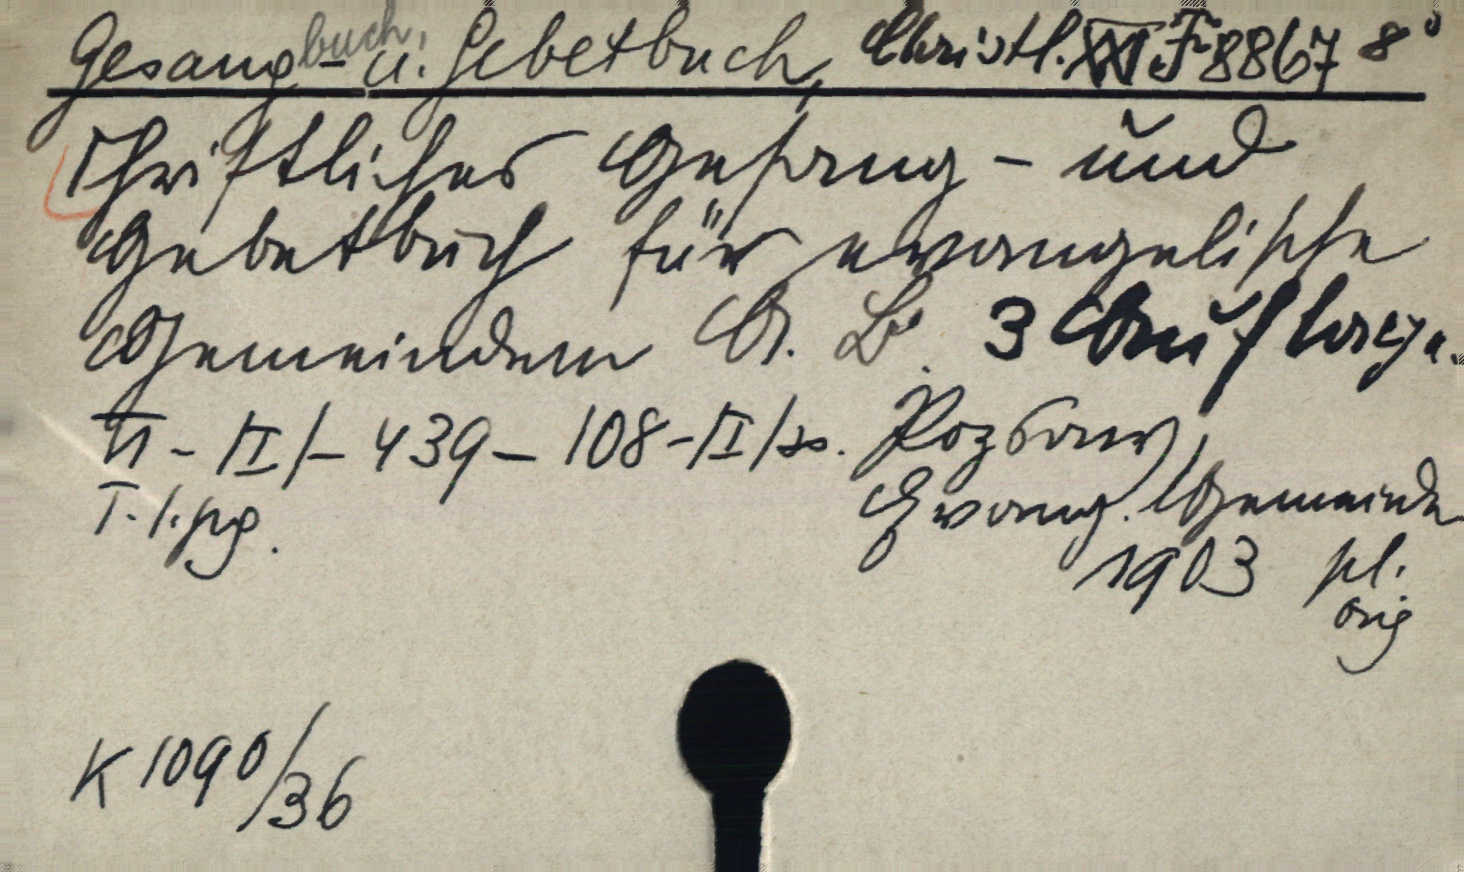 Gesangbuch- u. Gebetbuch, Christl. XXI F 8867 8°
Christliches Gesang- und
Gebetbuch für evangelische
Gemeinden A. B. 3 Auflage.
II - 439 - 108 - II
Pozsony,
Evang. Gemeinde
1903
K 1090/36